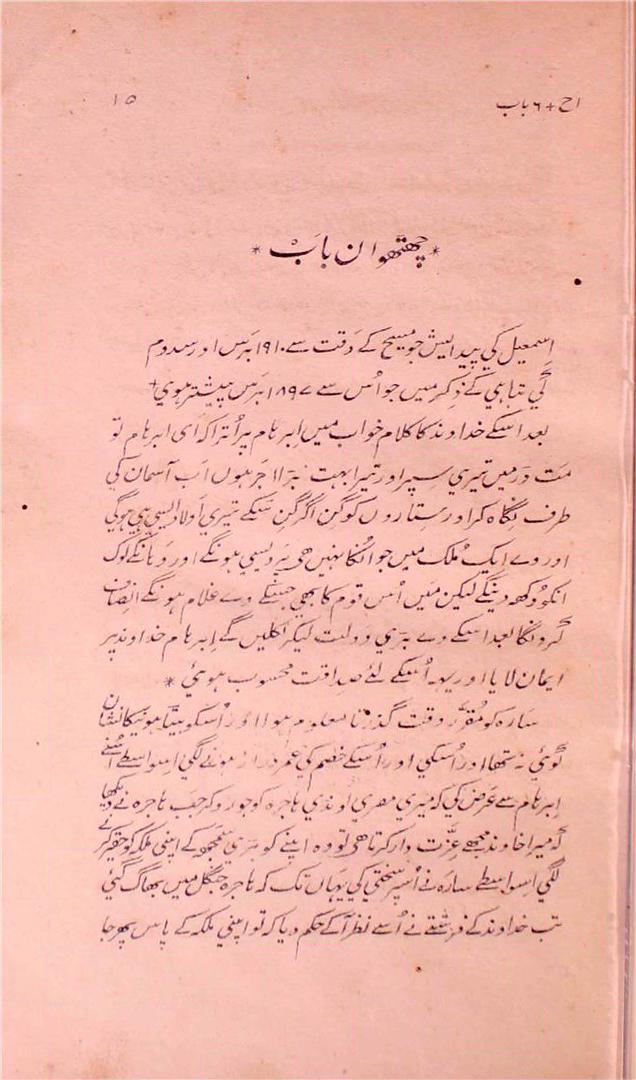 اح + ۶ باب ۱۵
* چھٹھوان باب *
اِسمعیل کي پیدایش جو مسیح کے وَقت سے ۱۹۱۰ برَس اور سدوم
کي تباہي کے ذِکر میں جو اُس سے ۱۸۹۷ برَس پیشتر ہوي +
بعد اسکے خداوند کا کلام خواب میں اِبرہام پر اُترا کہ اَی ابرہام تو
مَت ڈر میں تیري سپر اور تیرا بہت بڑا اجر ہوں اَب آسمان کي
طرف نِگاہ کر اور سِتاروں کو گن اگر گن سَکے تیري اَولاد ایسي ہي ہوگي
اور وے ایک مُلک میں جو اُنکا نہیں ھی پردیسي ہونگے اور وَہانکے لوگ
انکو دُکھ دینگے لیکن مَیں اُس قوم کا بھي جِسکے وے غلام ہونگے اِنصاف
کرونگا بعد اسکے وے بڑي دولت لیکر نکلیں گے اِبرہام خداوند پر
ایمان لایا اور یہہ اُسکے لئے صداقت محسوب ہوئي *
سارہ کو مُقرّر وقت گذرتا معلوم ہوا اور اُسکو بیٹا ہونیکا نشان
کوئي نہ تھا اور اُسکي اور اُسکے خصم کي عمر دراز ہونے لگي اِسواسطے اُسنے
اِبرہام سے عَرض کي کہ میري مصري لونڈي ہاجرہ کو جورو کر جب ہاجرہ نے دیکھا
کہ میرا خاوند مجھے عِزّت دار کرتا ھی تو وہ اپنے کو بڑي سمجھ کے اپني ملکہ کو حقیر کرنے
لگي اِسواسطے سارہ نے اُسپر سختي کي یہاں تک کہ ہاجرہ جنگل میں بھاگ گئي
تب خداوند کے فرشتے نے اُسے نظر آکے حکم دیا کہ تو اپني ملکہ کے پاس پھر جا